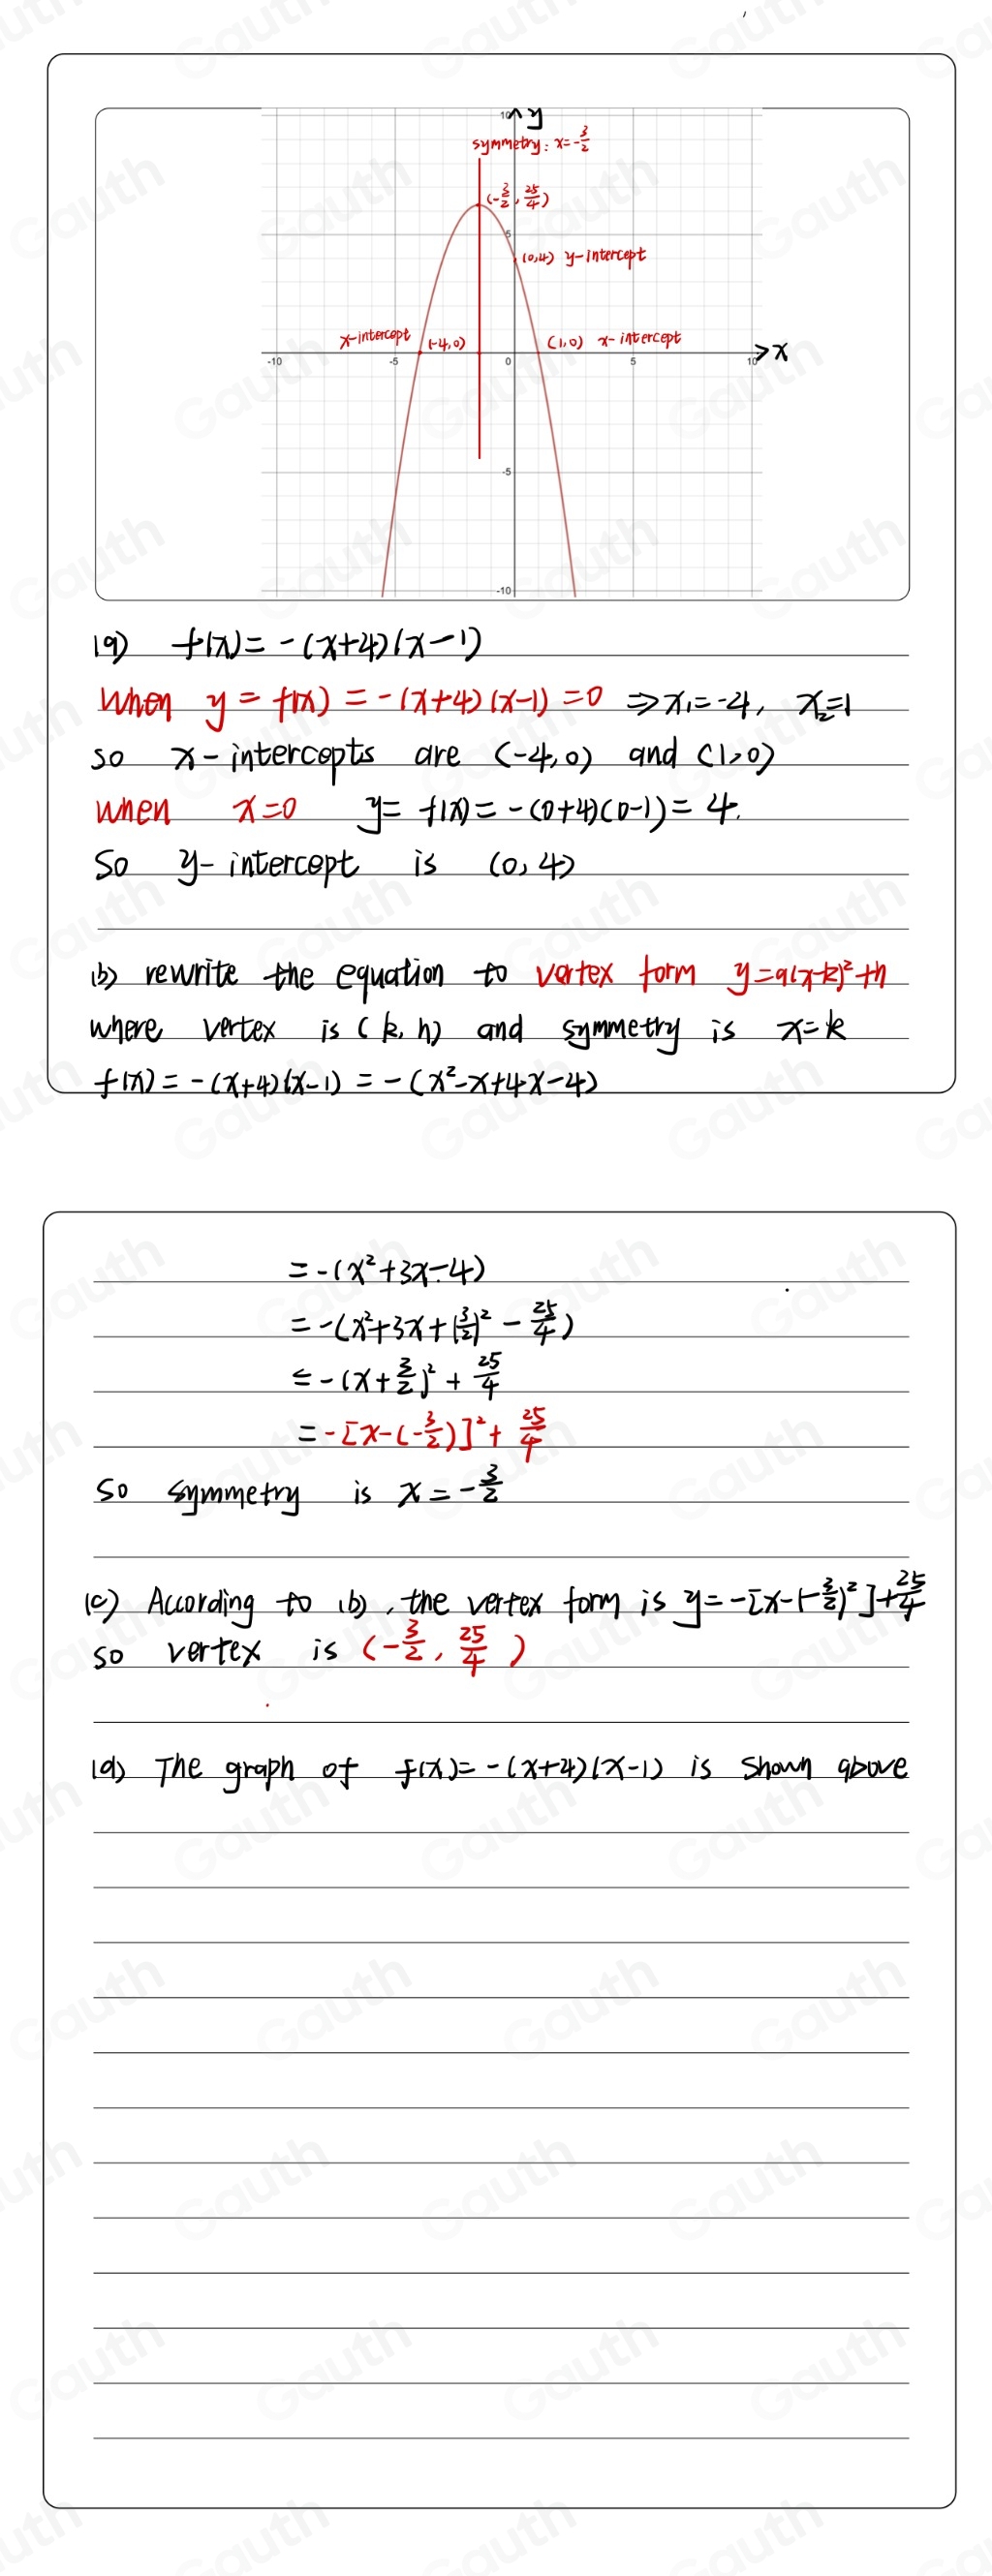 10 y
symmetry: x=-3/2
(-3/2, 25/4)
5
(0,4) y-intercept
x-intercept (-4,0) (1,0) x-intercept
-10 -5 0 5 10 x
-5
-10
(a) f(x)=-(x+4)(x-1)
When y=f(x)=-(x+4)(x-1)=0 ⇒x₁=-4, x₂=1
so x-intercepts are (-4,0) and (1,0)
when x=0 y=f(x)=-(0+4)(0-1)=4.
So y-intercept is (0,4)
(b) rewrite the equation to vertex form y=a(x-k)²+h
where vertex is (k,h) and symmetry is x=k
f(x)=-(x+4)(x-1)=-(x²-x+4x-4)
=-(x²+3x-4)
=-(x²+3x+(3/2)²-25/4)
=-(x+3/2)²+25/4
=-[x-(-3/2)]²+25/4
so symmetry is x=-3/2
(c) According to (b), the vertex form is y=-[x-(-3/2)²]+25/4
so vertex is (-3/2, 25/4)
(d) The graph of f(x)=-(x+4)(x-1) is shown above
Gauth